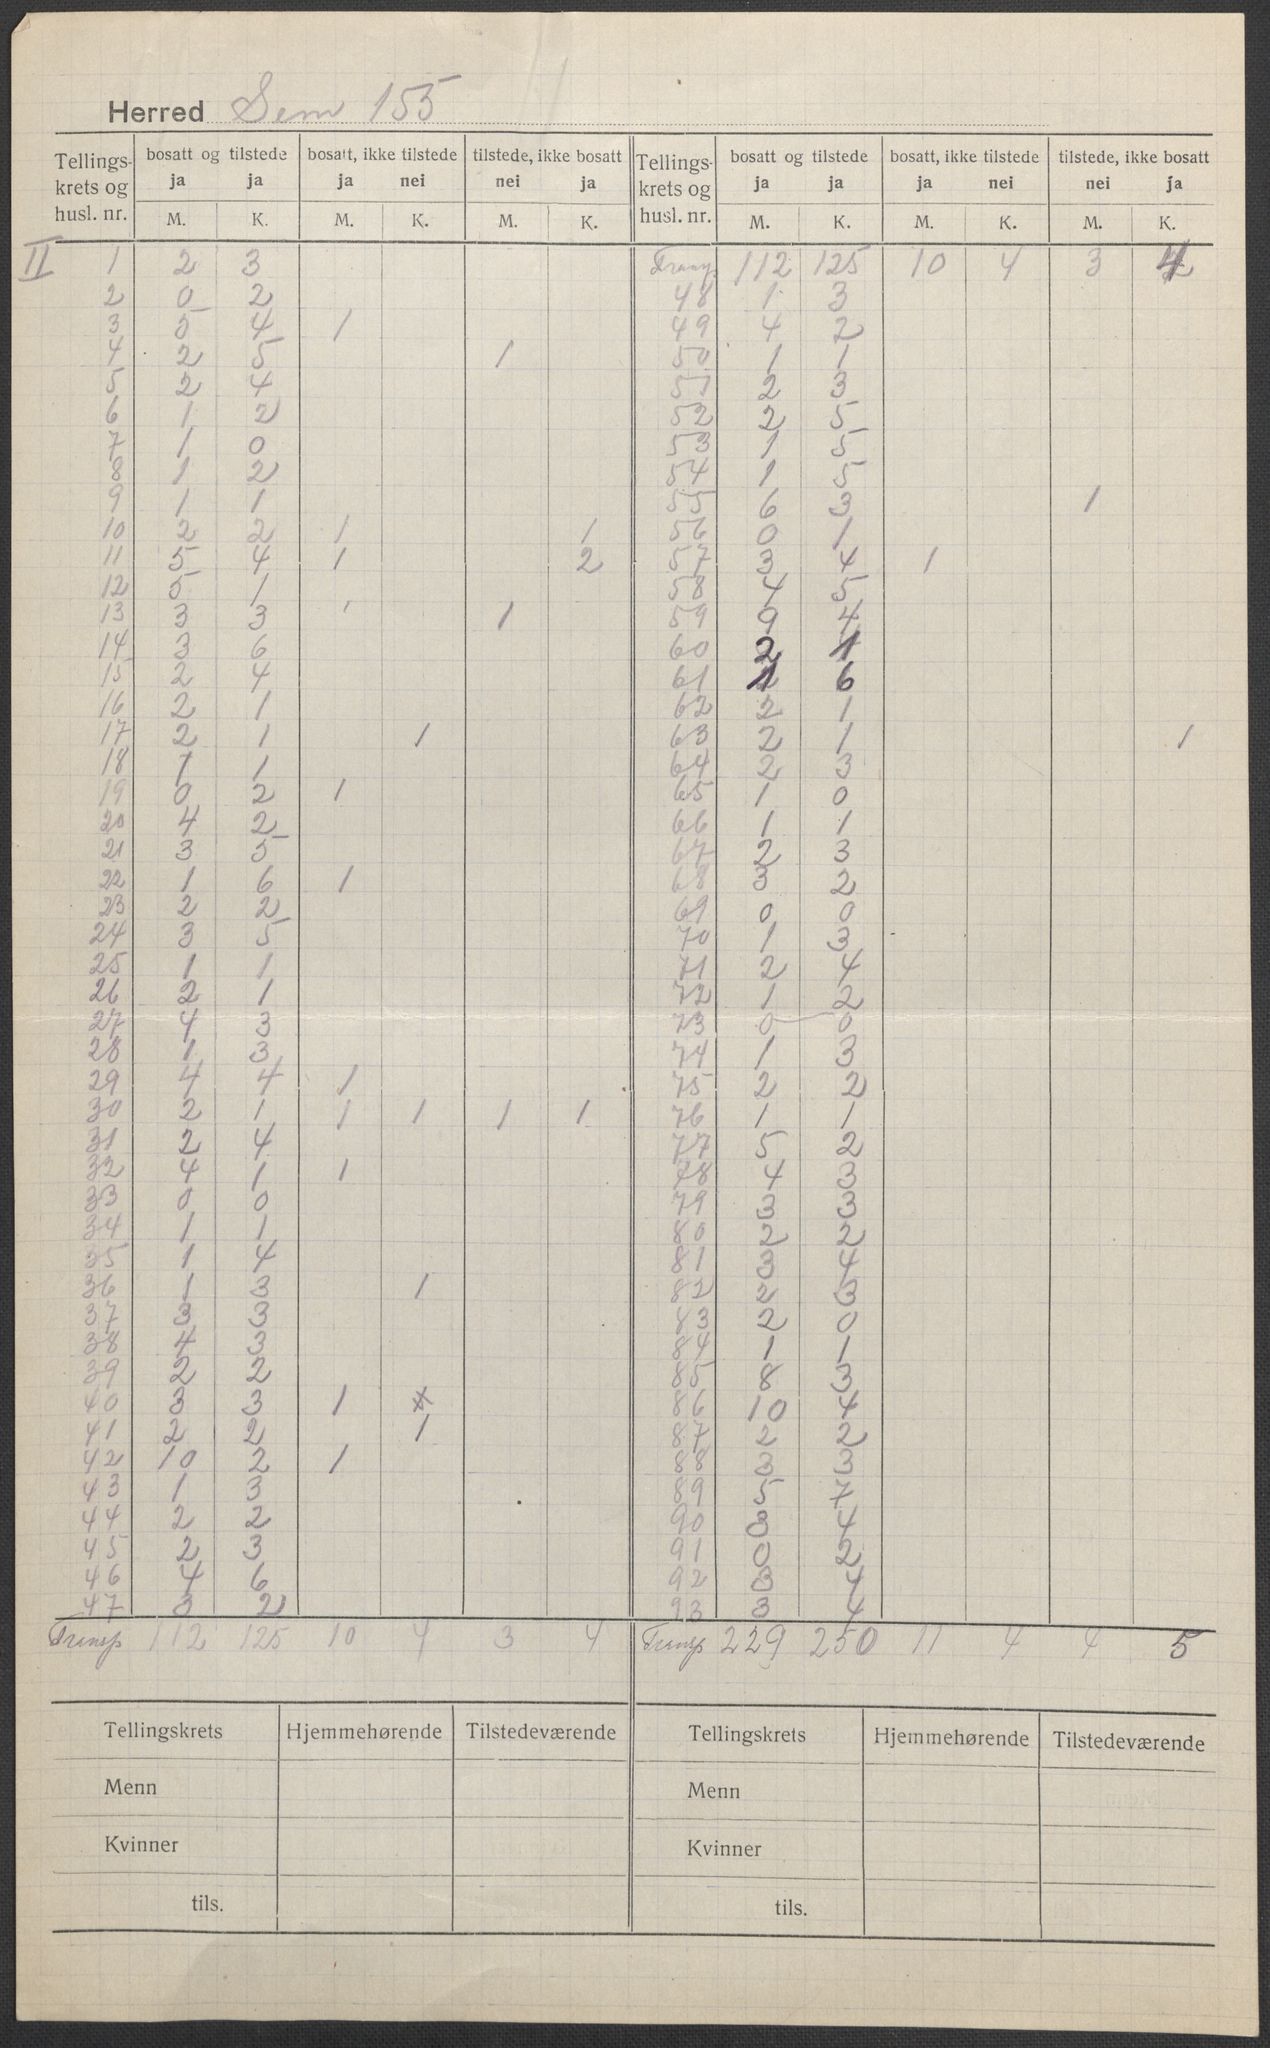 Herred Sem 155
Tellings-krets og husl. nr. | bosatt og tilstede ja ja | bosatt, ikke tilstede ja nei | tilstede, ikke bosatt nei ja | Tellings-krets og husl. nr. | bosatt og tilstede ja ja | bosatt, ikke tilstede ja nei | tilstede, ikke bosatt nei ja
M. K. M. K. M. K. M. K. M. K. M. K.
II 1 2 3
2 0 2
3 5 4 1
4 2 5 1
5 2 4
6 1 2
7 1 0
8 1 2
9 1 1
10 2 2 1 1
11 5 4 1 2
12 5 1
13 3 3 1 1
14 3 6
15 2 4
16 2 1
17 2 1 1
18 1 1
19 0 2 1
20 4 2
21 3 5
22 1 6 1
23 2 2
24 3 5
25 1 1
26 2 1
27 4 3
28 1 3
29 4 4 1
30 2 1 1 1 1 1
31 2 4
32 4 1 1
33 0 0
34 1 1
35 1 4
36 1 3 1
37 3 3
38 4 3
39 2 2
40 3 3 1
41 2 2 1
42 10 2 1
43 1 3
44 2 2
45 2 3
46 4 6
47 3 2
Transp 112 125 10 4 3 4
Transp. 112 125 10 4 3 4
48 1 3
49 4 2
50 1 1
51 2 3
52 2 5
53 1 5
54 1 5
55 6 3 1
56 0 1
57 3 4 1
58 4 5
59 9 4
60 2 1
61 1 6
62 2 1
63 2 1 1
64 2 3
65 1 0
66 1 1
67 2 3
68 3 2
69 0 0
70 1 3
71 2 4
72 1 2
73 0 0
74 1 3
75 2 2
76 1 1
77 5 2
78 4 3
79 3 3
80 2 2
81 3 4
82 2 3
83 2 0
84 1 1
85 8 3
86 10 4
87 2 2
88 3 3
89 5 7
90 3 4
91 0 2
92 3 4
93 3 4
Transp 229 250 11 4 4 5
Tellingskrets Hjemmehørende Tilstedeværende Tellingskrets Hjemmehørende Tilstedeværende
Menn Menn
Kvinner Kvinner
tils. tils.